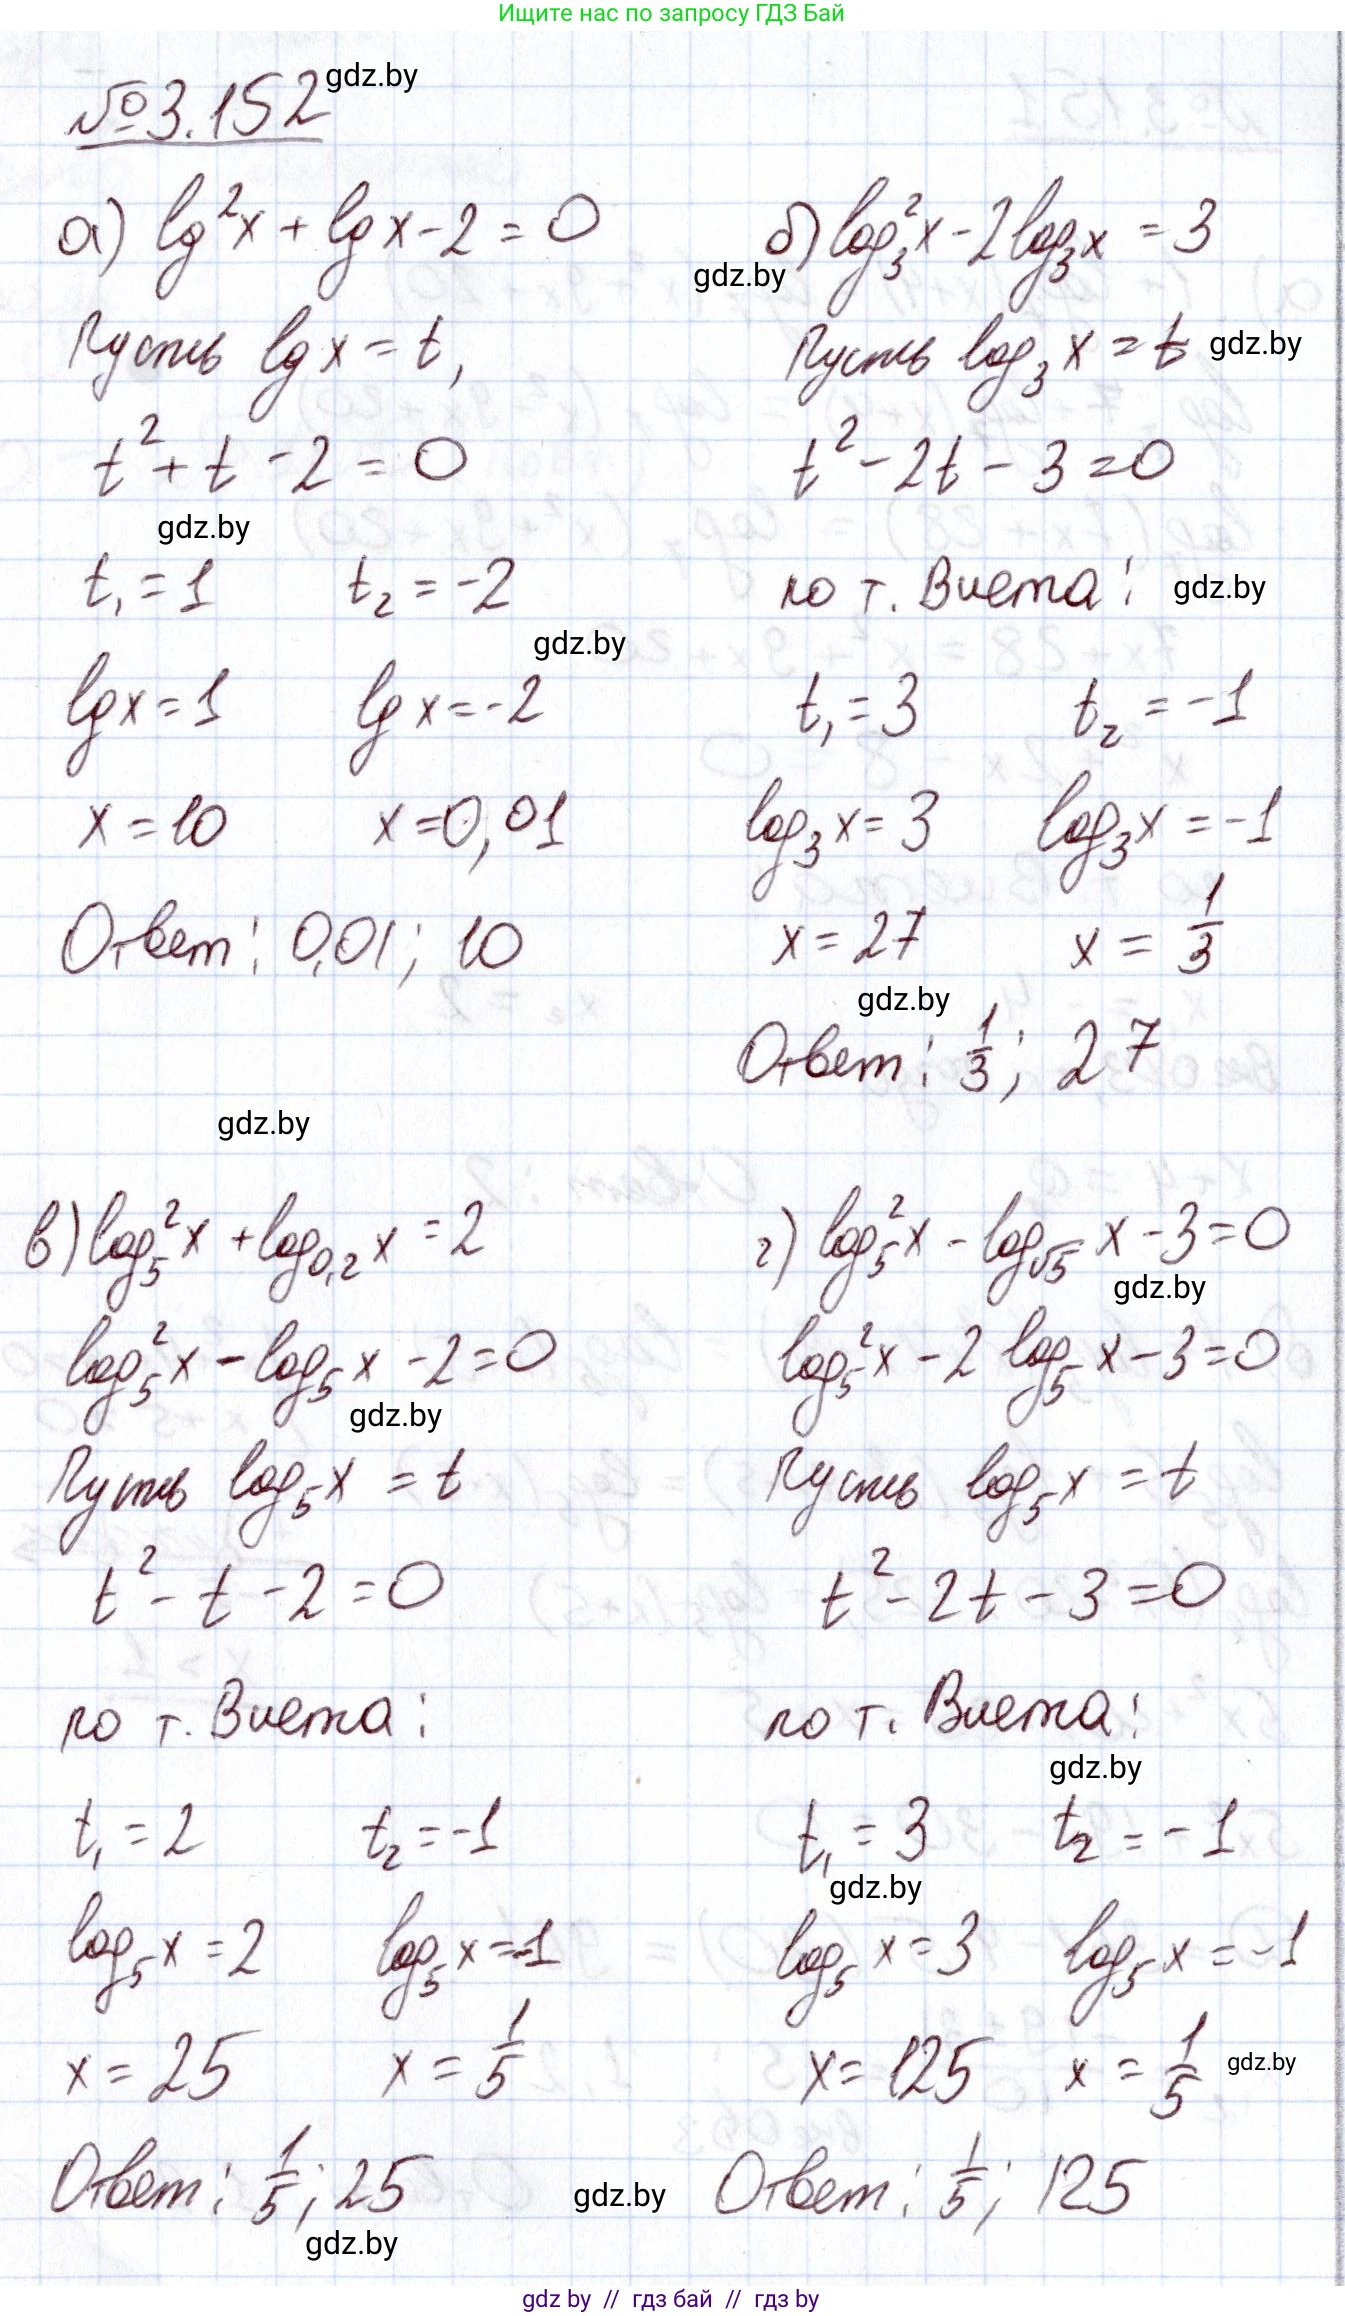 Ищите нас по запросу ГДЗ Бай
№3.152 gdz.by
а) lg²x + lgx - 2 = 0
Пусть lgx = t,
t² + t - 2 = 0
gdz.by
t₁ = 1 t₂ = -2
gdz.by
lgx = 1 lgx = -2
x = 10 x = 0,01
Ответ: 0,01; 10
gdz.by
б) log₃²x - 2log₃x = 3
gdz.by
Пусть log₃x = t gdz.by
t² - 2t - 3 = 0
по т. Виета: gdz.by
t₁ = 3 t₂ = -1
log₃x = 3 log₃x = -1
x = 27 x = 1/3
gdz.by
Ответ: 1/3; 27
в) log₅²x + log₀,₂x = 2
log₅²x - log₅x - 2 = 0
gdz.by
Пусть log₅x = t
t² - t - 2 = 0
по т. Виета:
t₁ = 2 t₂ = -1
log₅x = 2 log₅x = -1
x = 25 x = 1/5
Ответ: 1/5; 25
gdz.by
gdz.by
г) log₅²x - log√₅ x - 3 = 0
gdz.by
log₅²x - 2 log₅x - 3 = 0
Пусть log₅x = t
t² - 2t - 3 = 0
по т. Виета:
gdz.by
t₁ = 3 t₂ = -1
gdz.by
log₅x = 3 log₅x = -1
x = 125 x = 1/5 gdz.by
Ответ: 1/5; 125
gdz by // гдз бай // гдз by